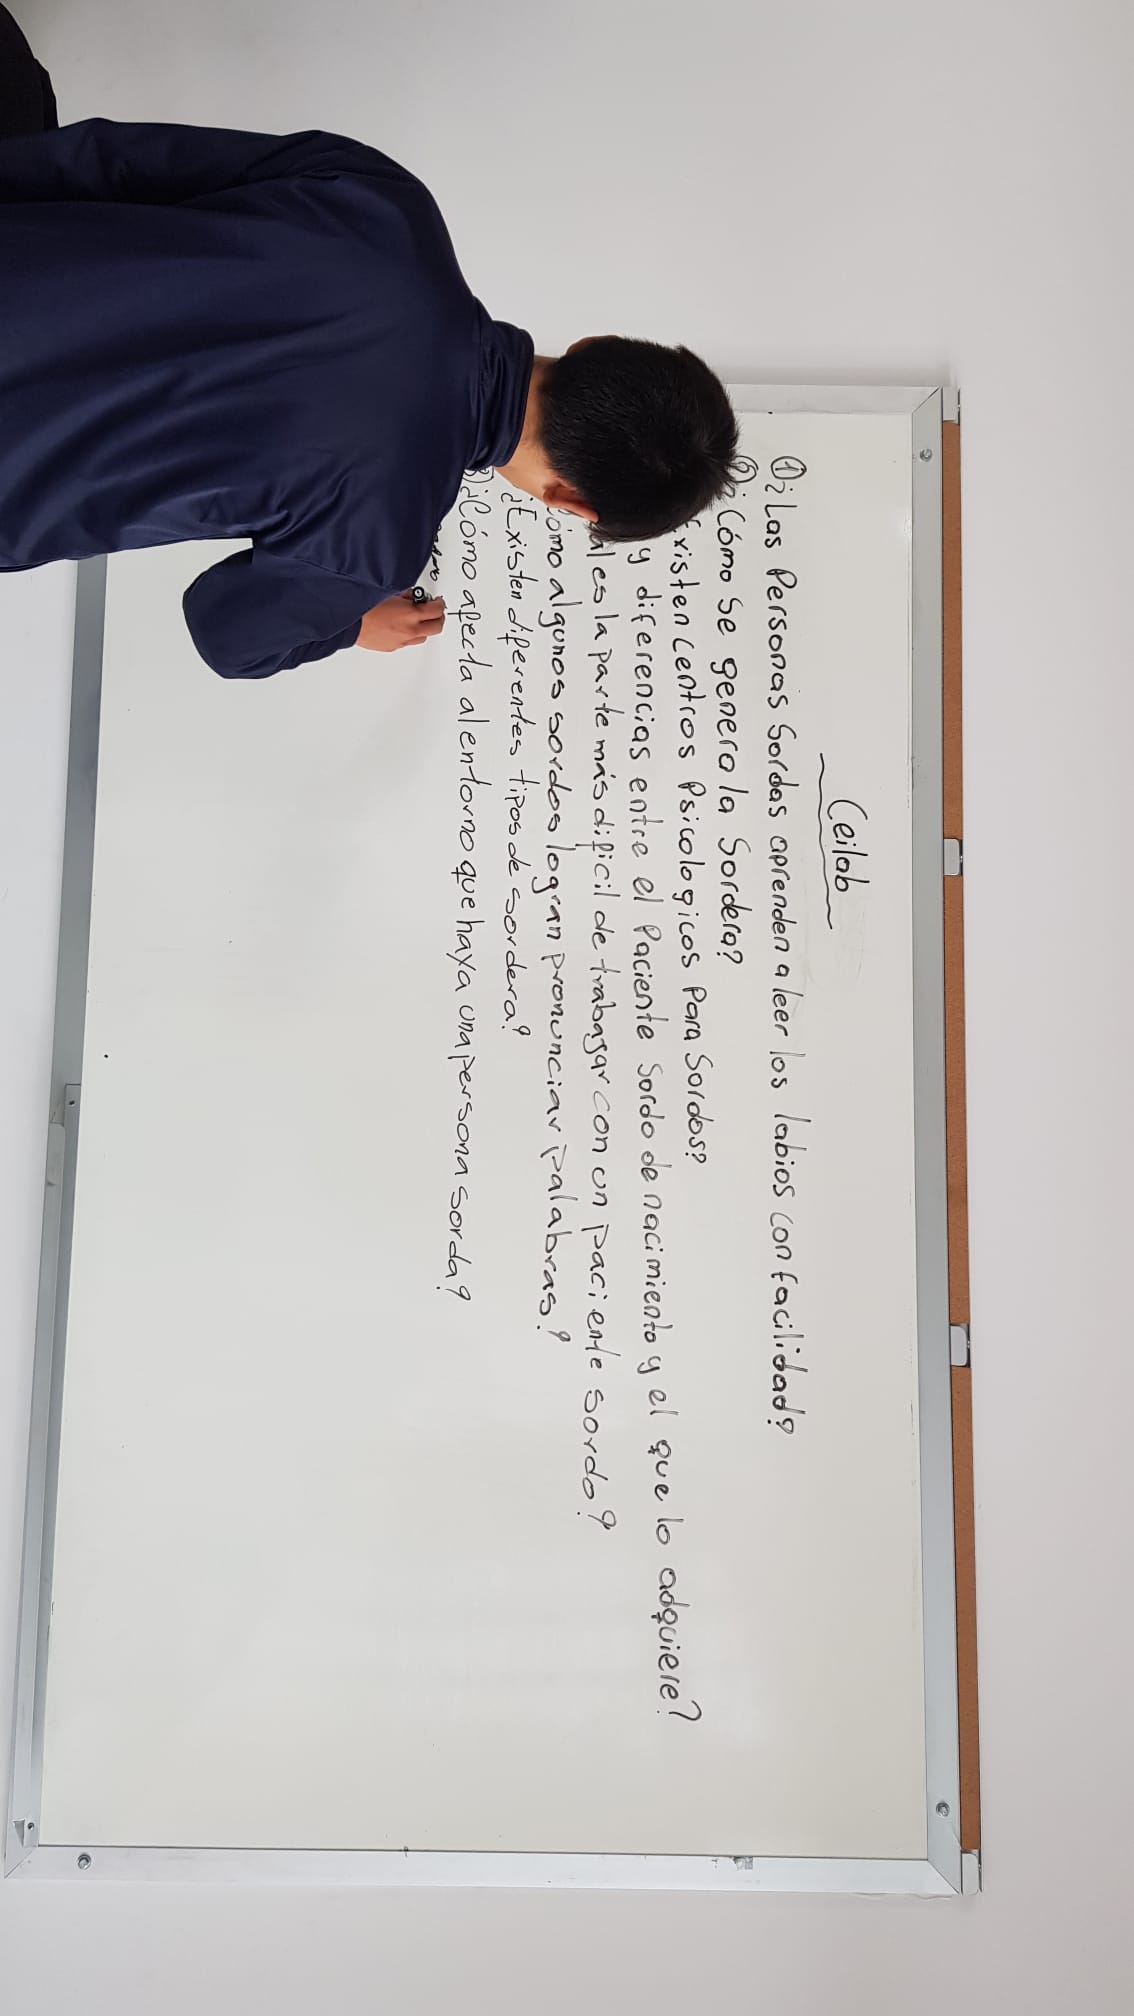 Ceilab
① ¿Las Personas Sordas aprenden a leer los labios con facilidad?
② ¿Cómo Se genera la Sordera?
Existen centros Psicologicos Para Sordos?
y diferencias entre el Paciente Sordo de nacimiento y el que lo adquiere?
ál es la parte más dificil de trabagar con un paciente sordo?
Cómo algunos sordos logran pronunciar palabras?
¿Existen diferentes tipos de sordera?
8) ¿Cómo afecta al entorno que haya una persona sorda?